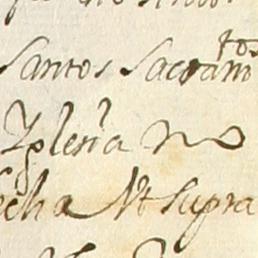 Santos Sacram^tos
Yglesia no
fecha Vt Supra